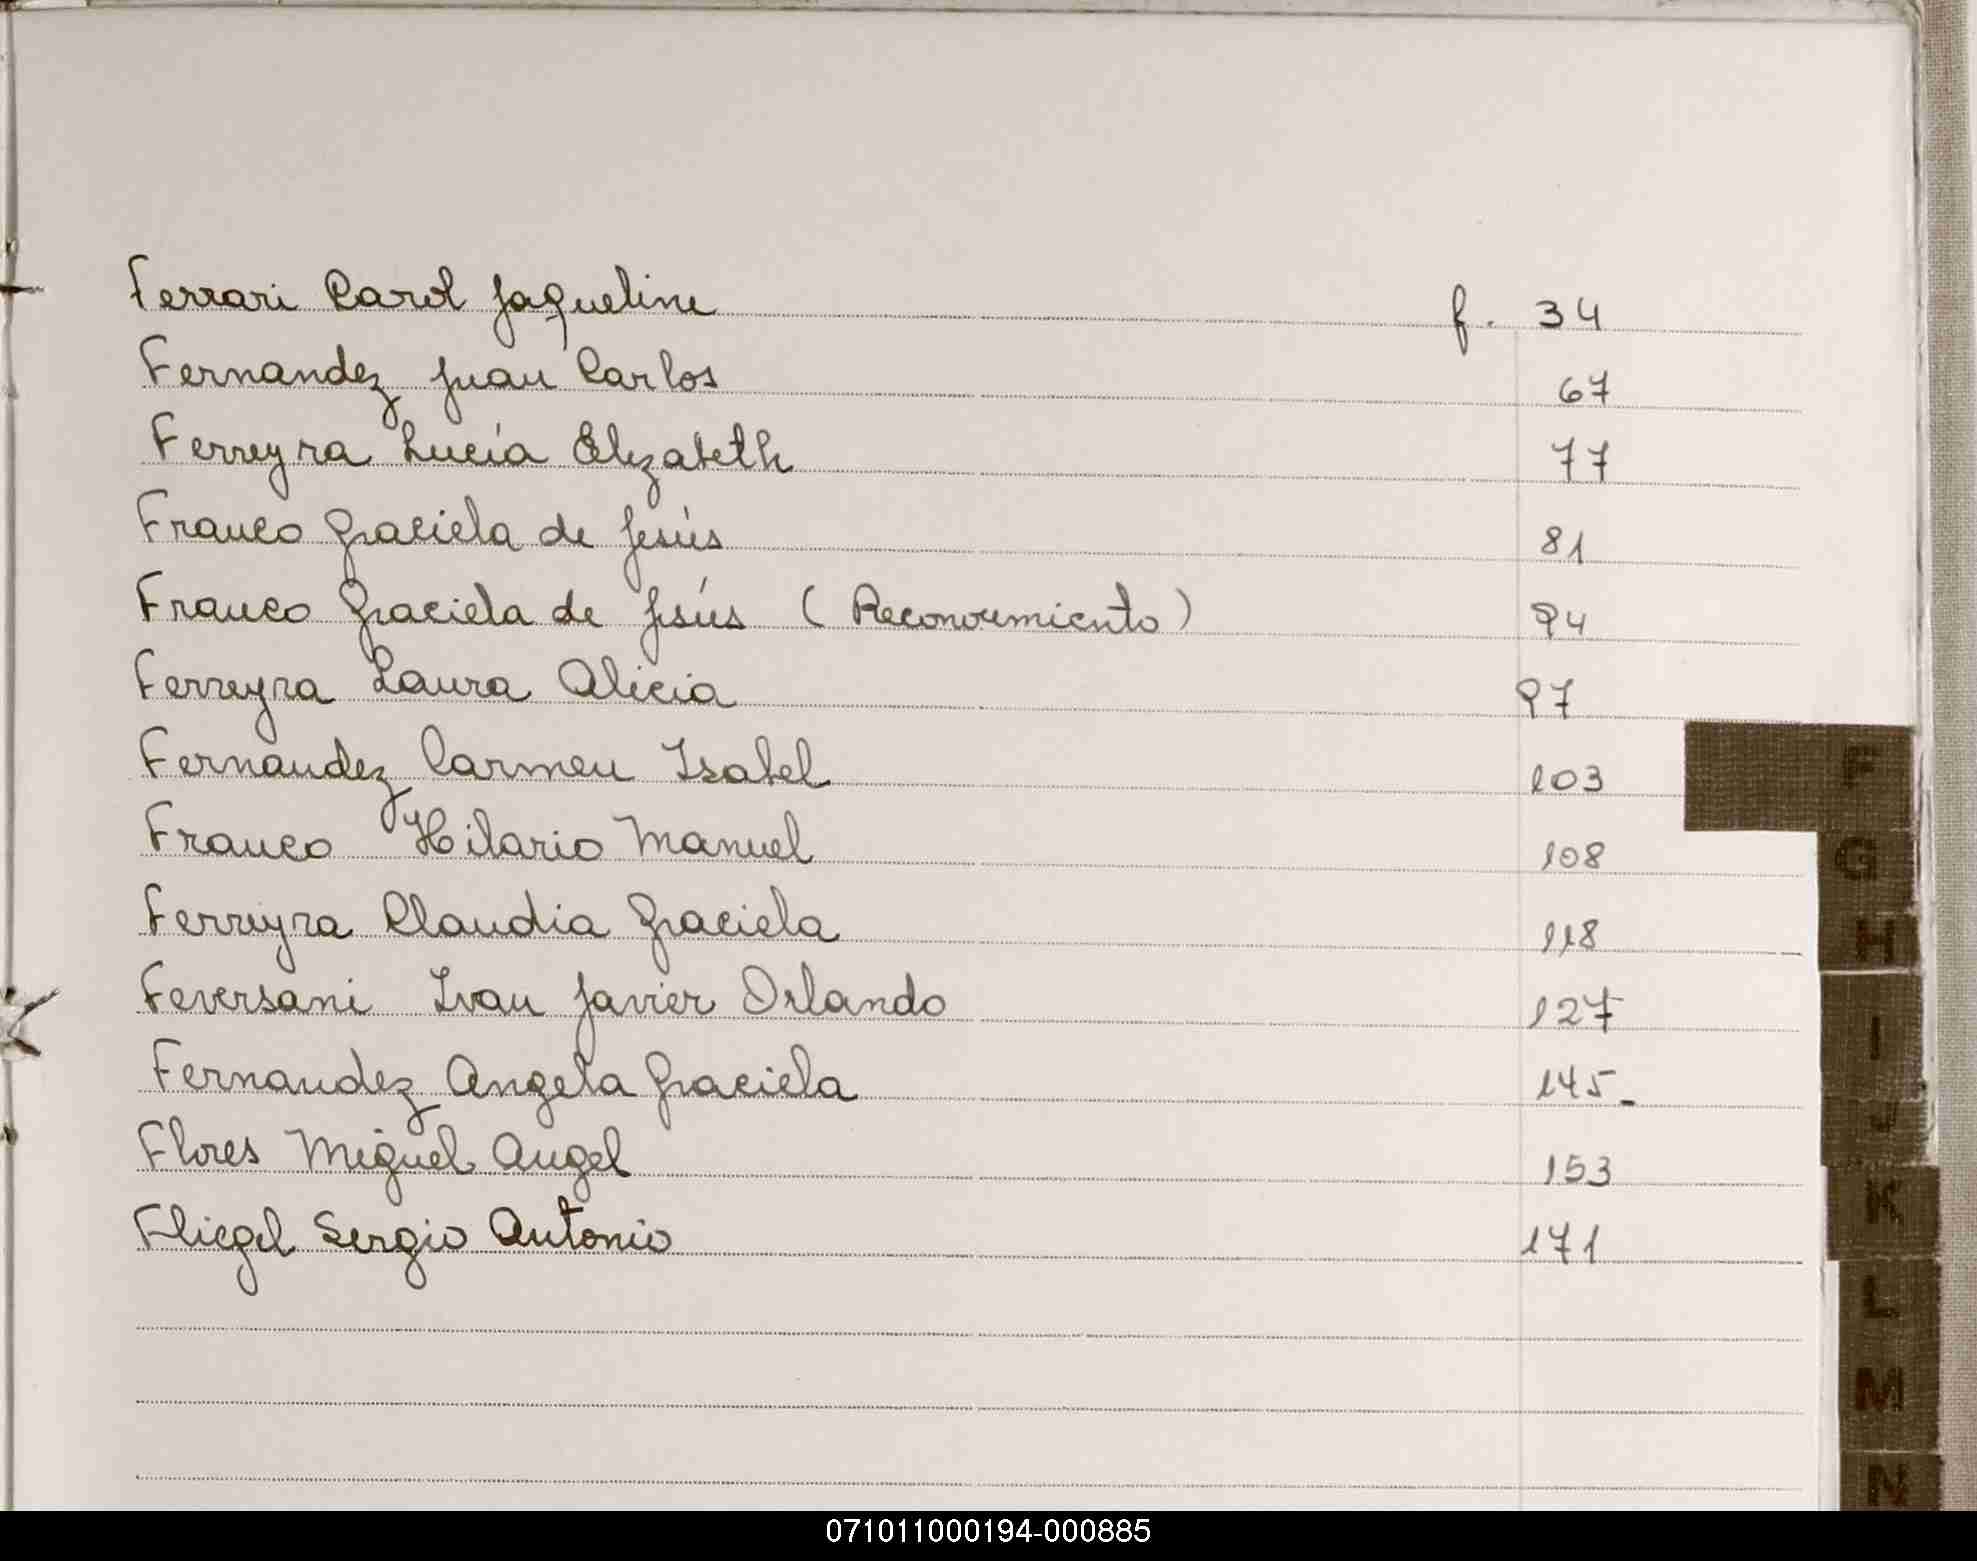 Ferrari Carol Jaqueline f. 34
Fernandez Juan Carlos 67
Ferreyra Lucía Elizabeth 77
Franco Graciela de Jesús 81
Franco Graciela de Jesús (Reconocimiento) 94
Ferreyra Laura Alicia 97
Fernandez Carmen Isabel 103
Franco Hilario Manuel 108
Ferreyra Claudia Graciela 118
Feversani Ivan Javier Orlando 127
Fernandez Angela Graciela 145-
Flores Miguel Angel 153
Fliegel Sergio Antonio 171
F
G
H
I
J
K
L
M
N
071011000194-000885